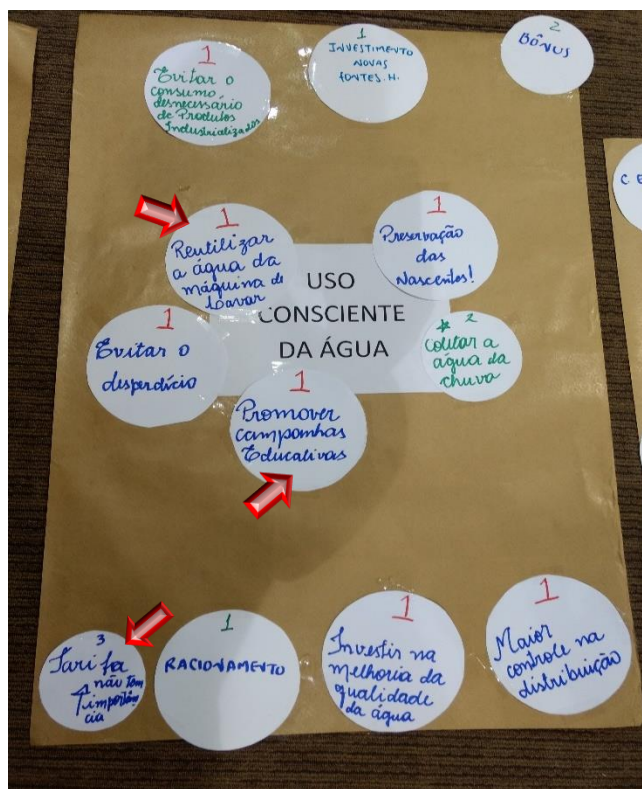 1
Evitar o
consumo
desnecessário
de Produtos
Industrializados
1
INVESTIMENTO
NOVAS
FONTES. H.
2
BÔNUS
1
Reutilizar
a água da
máquina de
Lavar
1
Preservação
das
Nascentes!
USO
CONSCIENTE
DA ÁGUA
1
Evitar o
desperdício
2
Coletar a
água da
chuva
1
Promover
campanhas
Educativas
3
Tarifa
não tem
importân
cia
1
RACIONAMENTO
1
Investir na
melhoria da
qualidade
da água
1
Maior
controle na
distribuição
C E